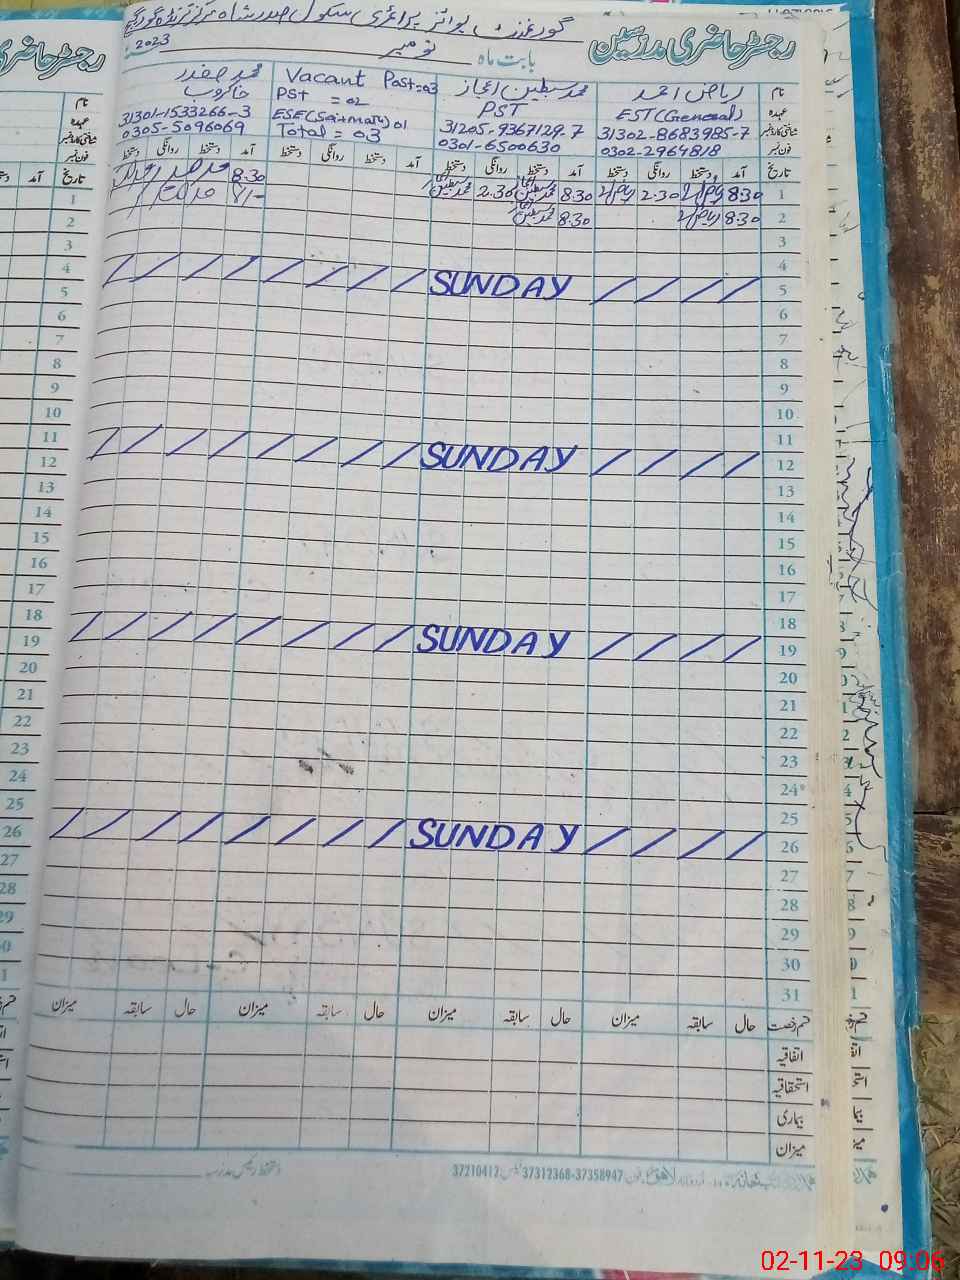 رجسٹر حاضری مدرسین
گورنمنٹ بوائز پرائمری سکول صدر شاہ مرکز ترنڈہ گورگیج
بابت ماہ نومبر 2023
نام
ریاض احمد
محمد سبطین اعجاز
Vacant Post=03
محمد صفدر
عہدہ
EST(General)
PST
PSt = 02
خاکروب
شناختی کارڈ نمبر
31302-8683985-7
31205-9367129-7
ESE(Sci+math) 01
31301-1533266-3
فون نمبر
0302-2964818
0301-6500630
Total = 03
0305-5096069
تاریخ آمد دستخط روانگی دستخط آمد دستخط روانگی دستخط آمد دستخط روانگی دستخط آمد دستخط روانگی دستخط
1 8:30 ریاض 2.30 ریاض 8:30 محمد سبطین 2.30 محمد سبطین 8:30 محمد صفدر
2 8:30 ریاض 8:30 محمد سبطین
3
4
5 SUNDAY
6
7
8
9
10
11
12 SUNDAY
13
14
15
16
17
18
19 SUNDAY
20
21
22
23
24
25
26 SUNDAY
27
28
29
30
31
قسم رخصت حال سابقہ میزان حال سابقہ میزان حال سابقہ میزان حال سابقہ میزان
اتفاقیہ
استحقاقیہ
بیماری
میزان
دستخط رئیس مدرسہ
37312368-37358947
37210412
02-11-23 09:06